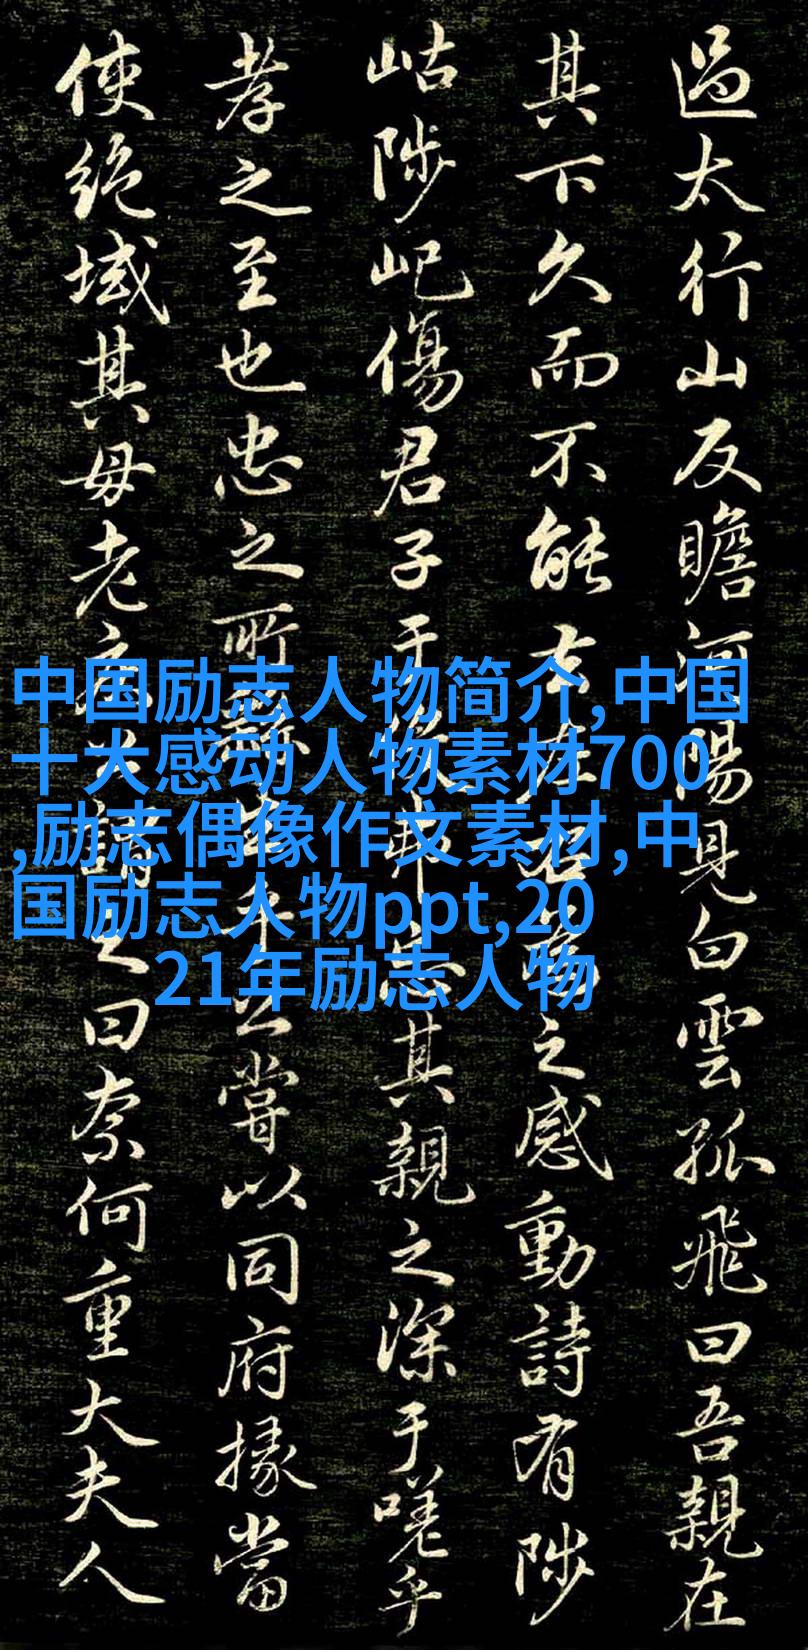 過太行山反瞻河陽見白雲孤飛曰吾親在
其下久而不能去左之感動詩有陟
岵陟屺傷君子于忘其親之深于嗟乎
孝之至也忠之所公嘗以同府掾當
使絕域其母老疾之曰奈何重大夫人
中国励志人物简介,中国
十大感动人物素材700
,励志偶像作文素材,中
国励志人物ppt,20
21年励志人物